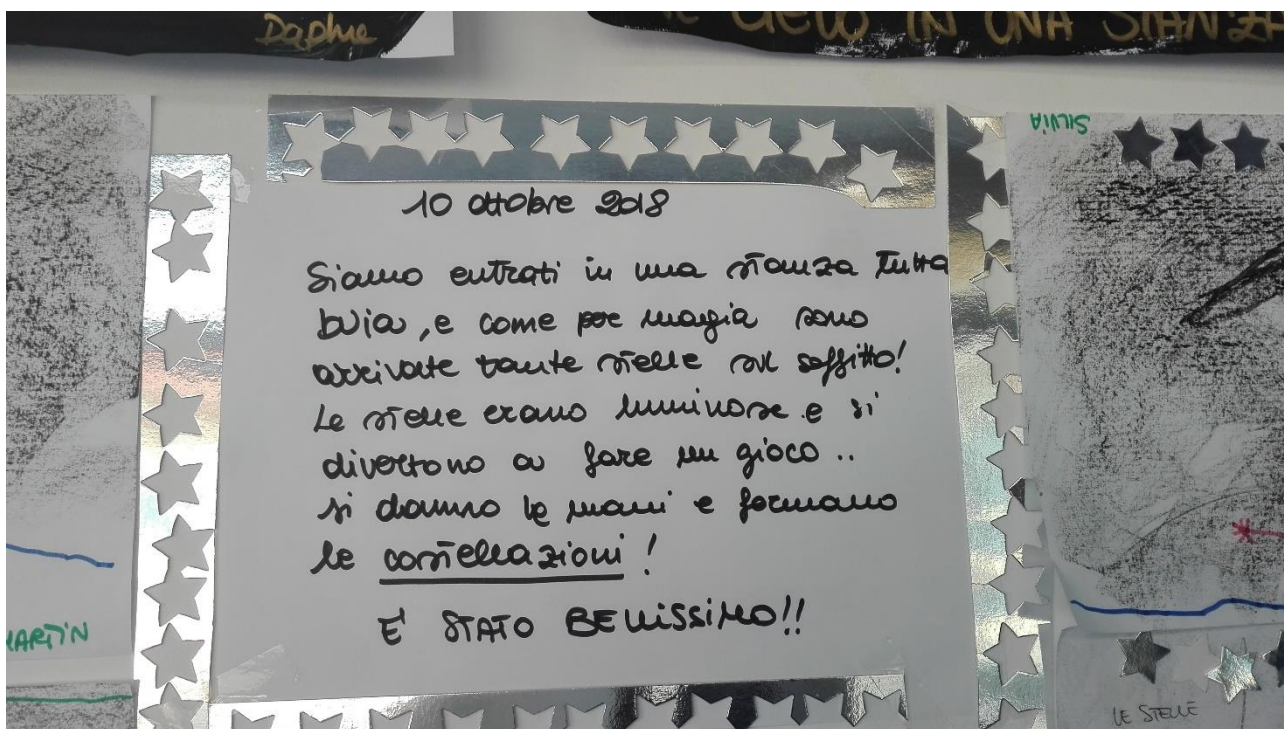 Daphne
CIELO IN UNA STANZA
SILVIA
10 ottobre 2018
Siamo entrati in una stanza tutta
buia, e come per magia sono
arrivate tante stelle sul soffitto!
Le stelle erano luminose e si
divertono a fare un gioco..
si danno le mani e formano
le costellazioni!
E' STATO BELLISSIMO!!
MARTIN
LE STELLE